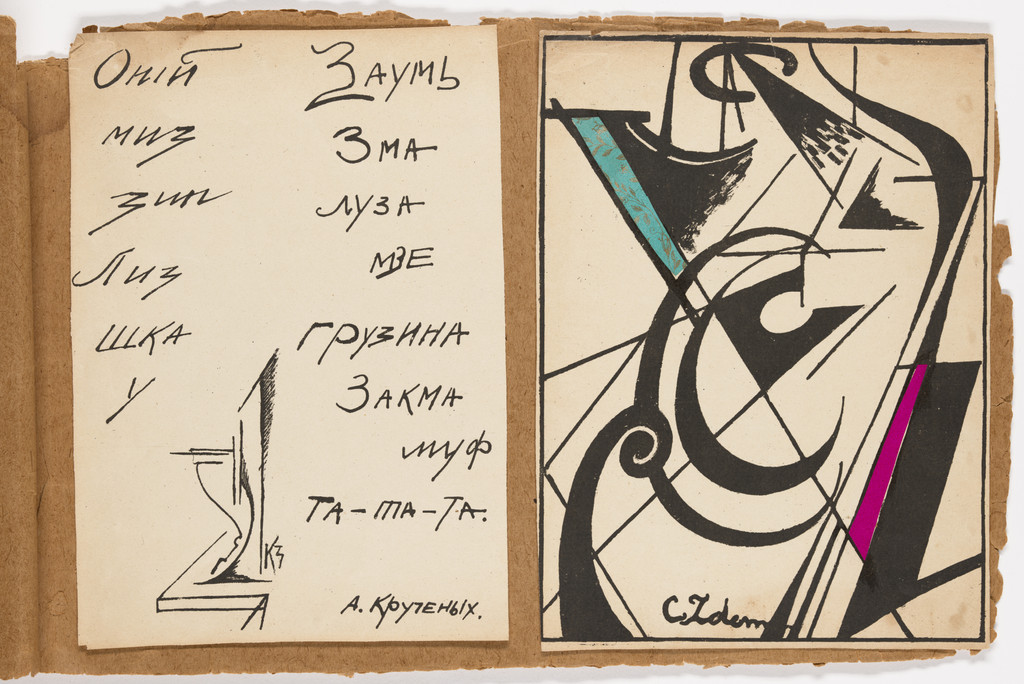 Оній
миз
зип
Лиз
шка
у
Заумь
Зма
луза
мзе
грузина
Закма
муф
та-та-та.
КЗ
А. Крученых.
C. Zdem